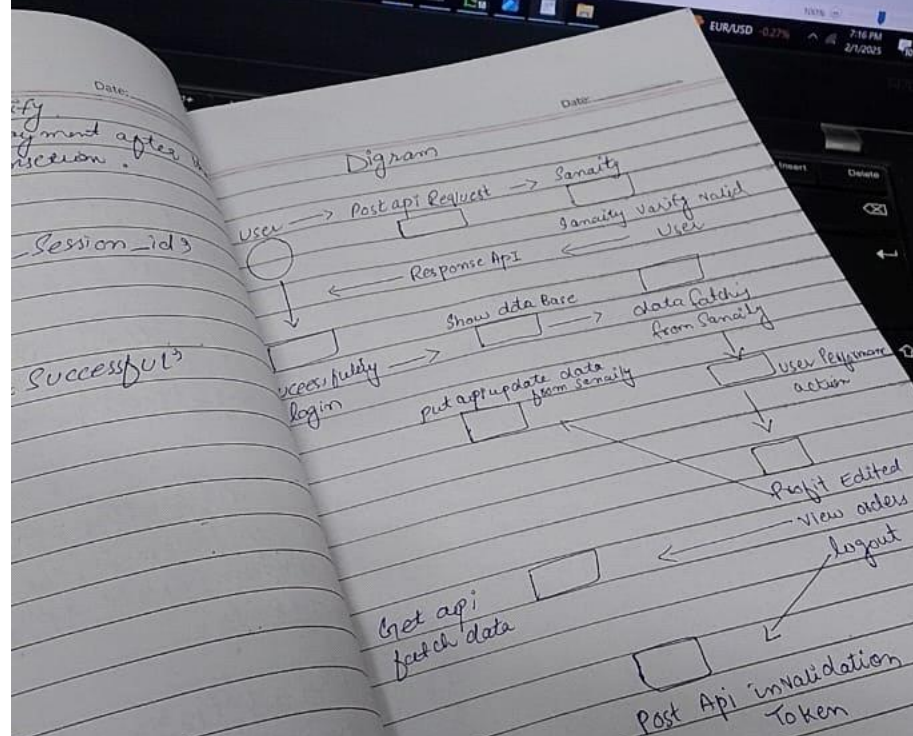 EUR/USD -0.27%
7:16 PM
2/1/2025
Insert
Delete
Date:
ify
yment after
nsection.
_Session_id}
Successful}
Date:
Digram
User → Post api Request → Sanaity
Sanaity Varify Valid
User
← Response ApI ←
Show data Base
data fatchig
from Sanaity
uccessfully → →
login
put api update data
from senaity
User Performan
action
Profit Edited
View orders
logout
Get api
fatch data
Post Api invalidation
Token